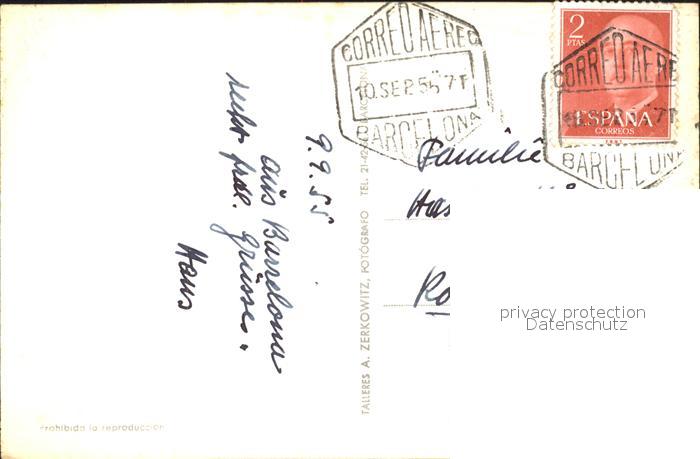 CORREO AEREO
10.SEP.55 7T
BARCELONA
2
PTAS
ESPAÑA
CORREOS
CORREO AERE
SEP 7T
BARCELON
9.9.55
aus Barcelona
recht frdl. Grüsse.
Hans
TALLERES A. ZERKOWITZ, FOTÓGRAFO TEL. 21-4 BARCELONA
Familie
Has
Ko
privacy protection
Datenschutz
Prohibida la reproducción